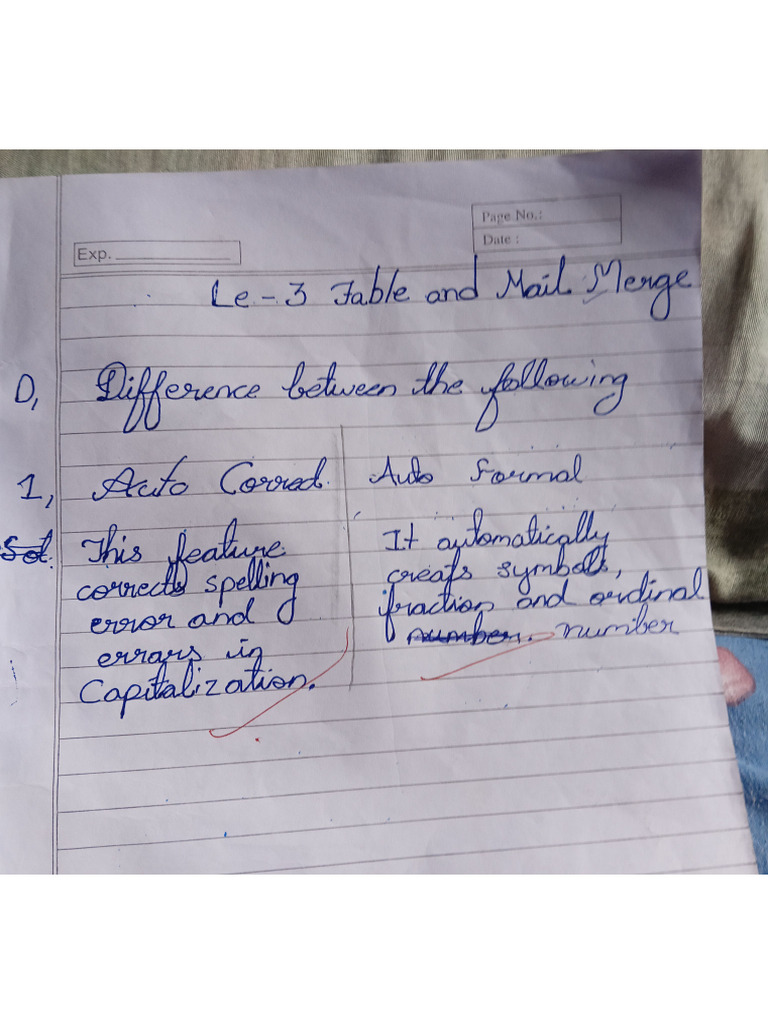 Page No.:
Date :
Exp.
Le - 3 Table and Mail Merge
D, Difference between the following
1, Auto Correct. Auto Format
Sol. This feature It automatically
corrects spelling creats symbols,
error and fraction and ordinal
errars in number. number
Capitalization.